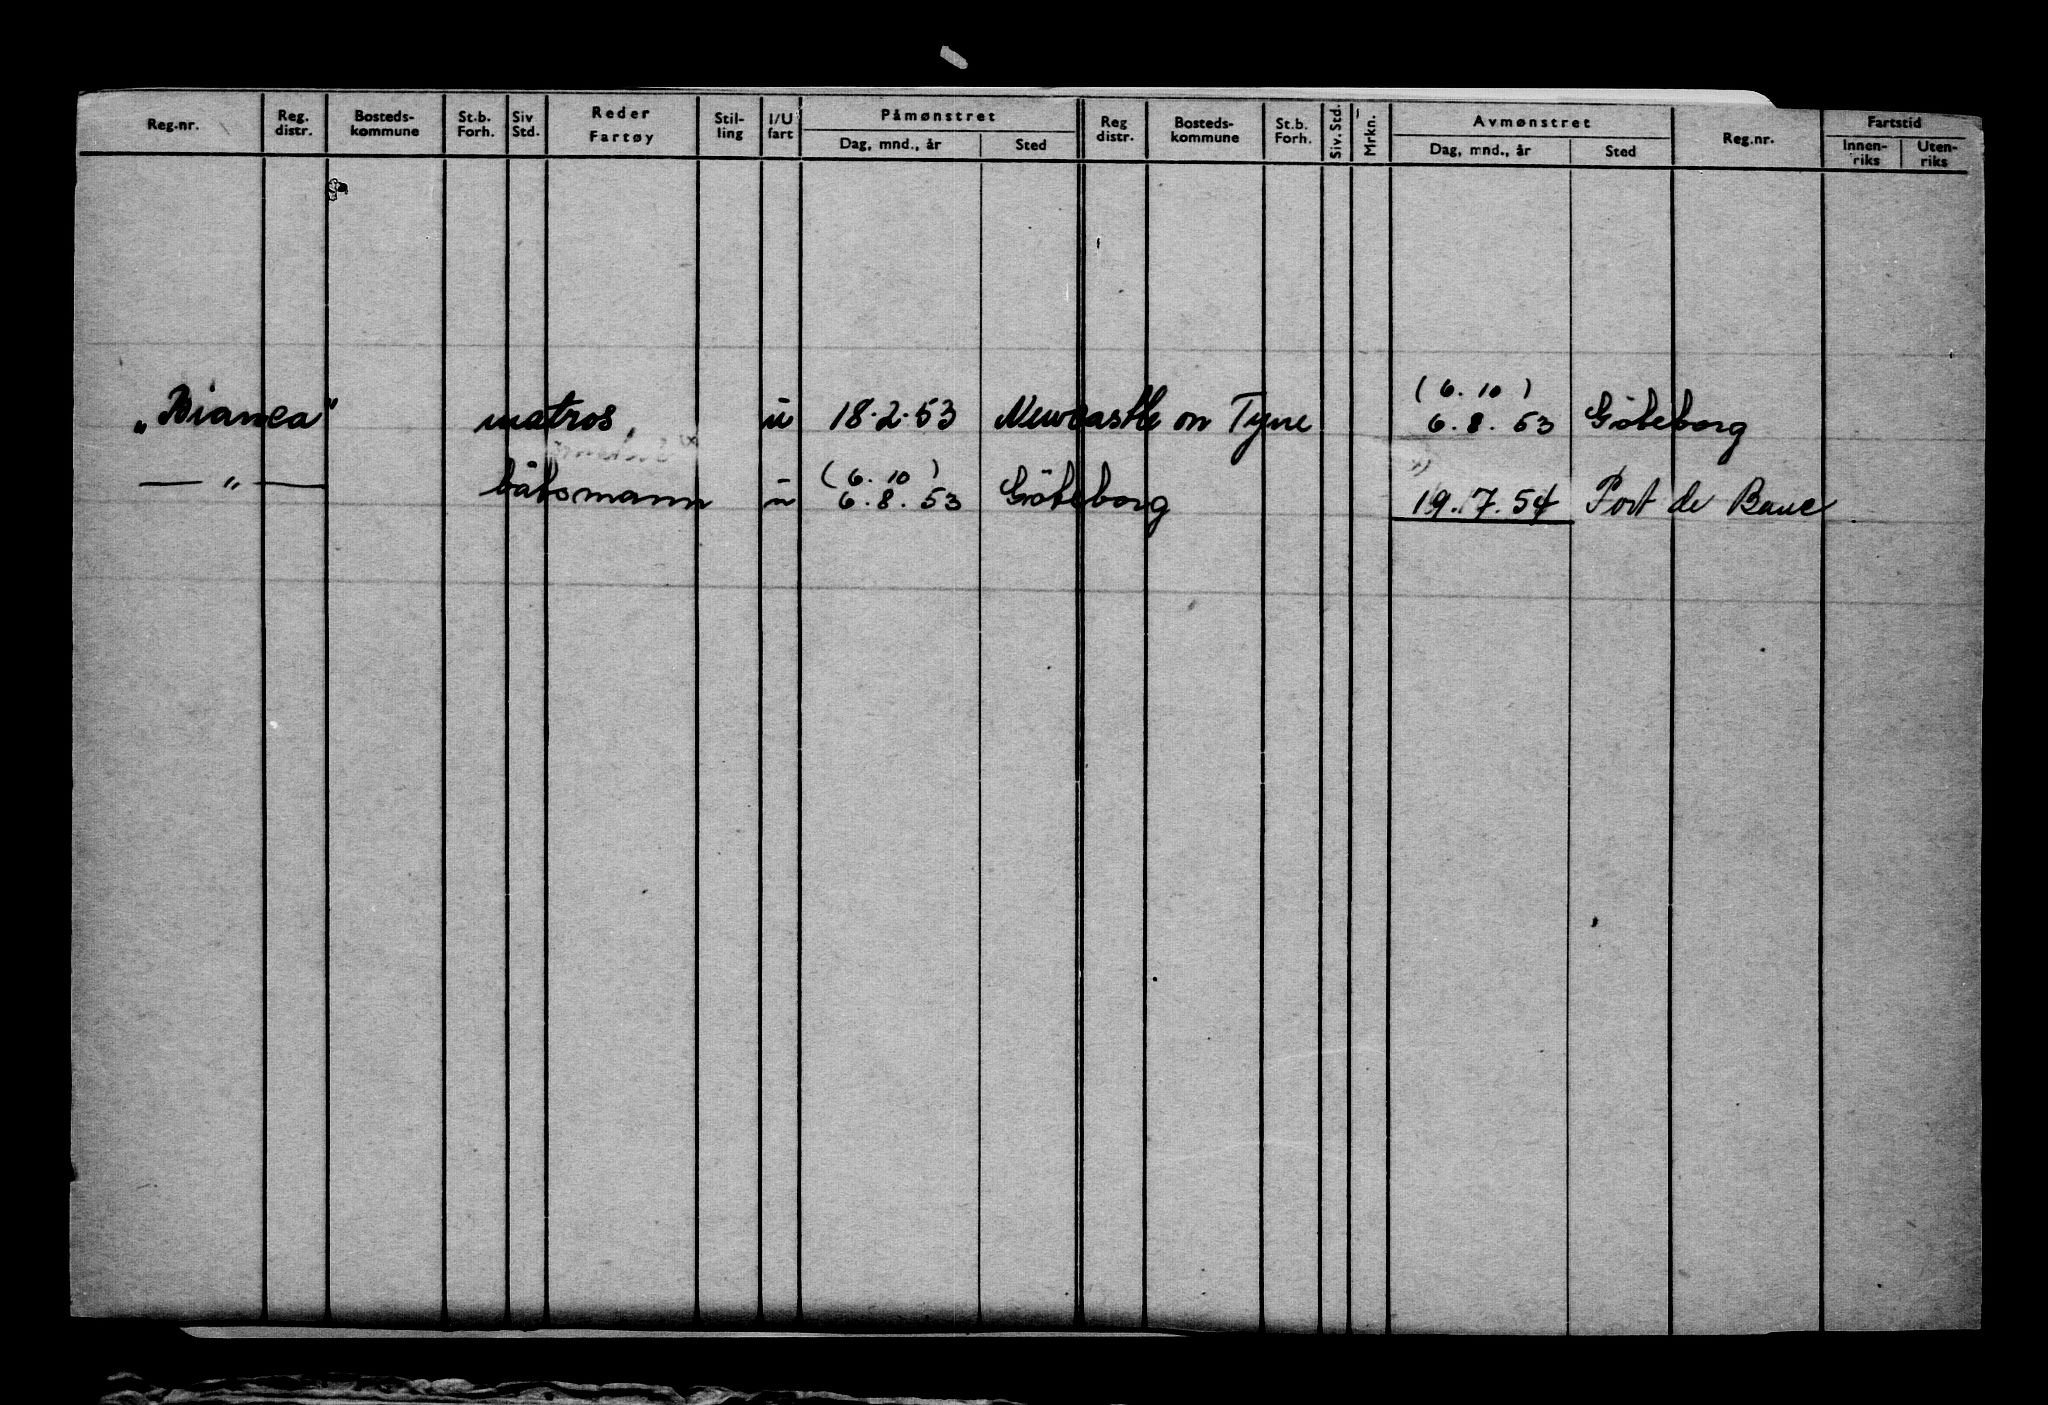 Reg.nr. Reg. distr. Bosteds-kommune St.b. Forh. Siv Std. Reder Fartøy Stil-ling I/U fart Påmønstret Dag, mnd., år Sted Reg distr. Bosteds-kommune St.b. Forh. Siv. Std. Mrkn. Avmønstret Dag, mnd., år Sted Reg.nr. Fartstid Innen-riks Uten-riks
(6. 10)
„Bianca" matros u 18.2.53 Newcastle on Tyne 6.8.53 Göteborg
(6. 10)
— " — båtsmann u 6.8.53 Göteborg 19.7.54 Port de Bouc